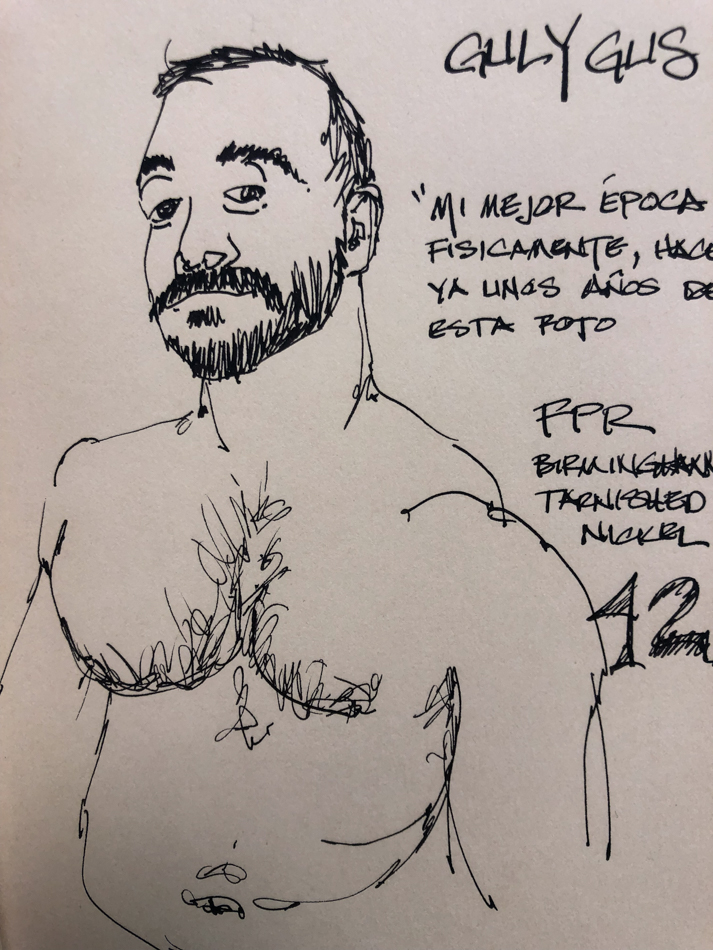 GULY GUS
"MI MEJOR ÉPOCA
FISICAMENTE, HACE
YA UNOS AÑOS DE
ESTA FOTO
FPR
BIRMINGHAM
TARNISHED
NICKEL
42